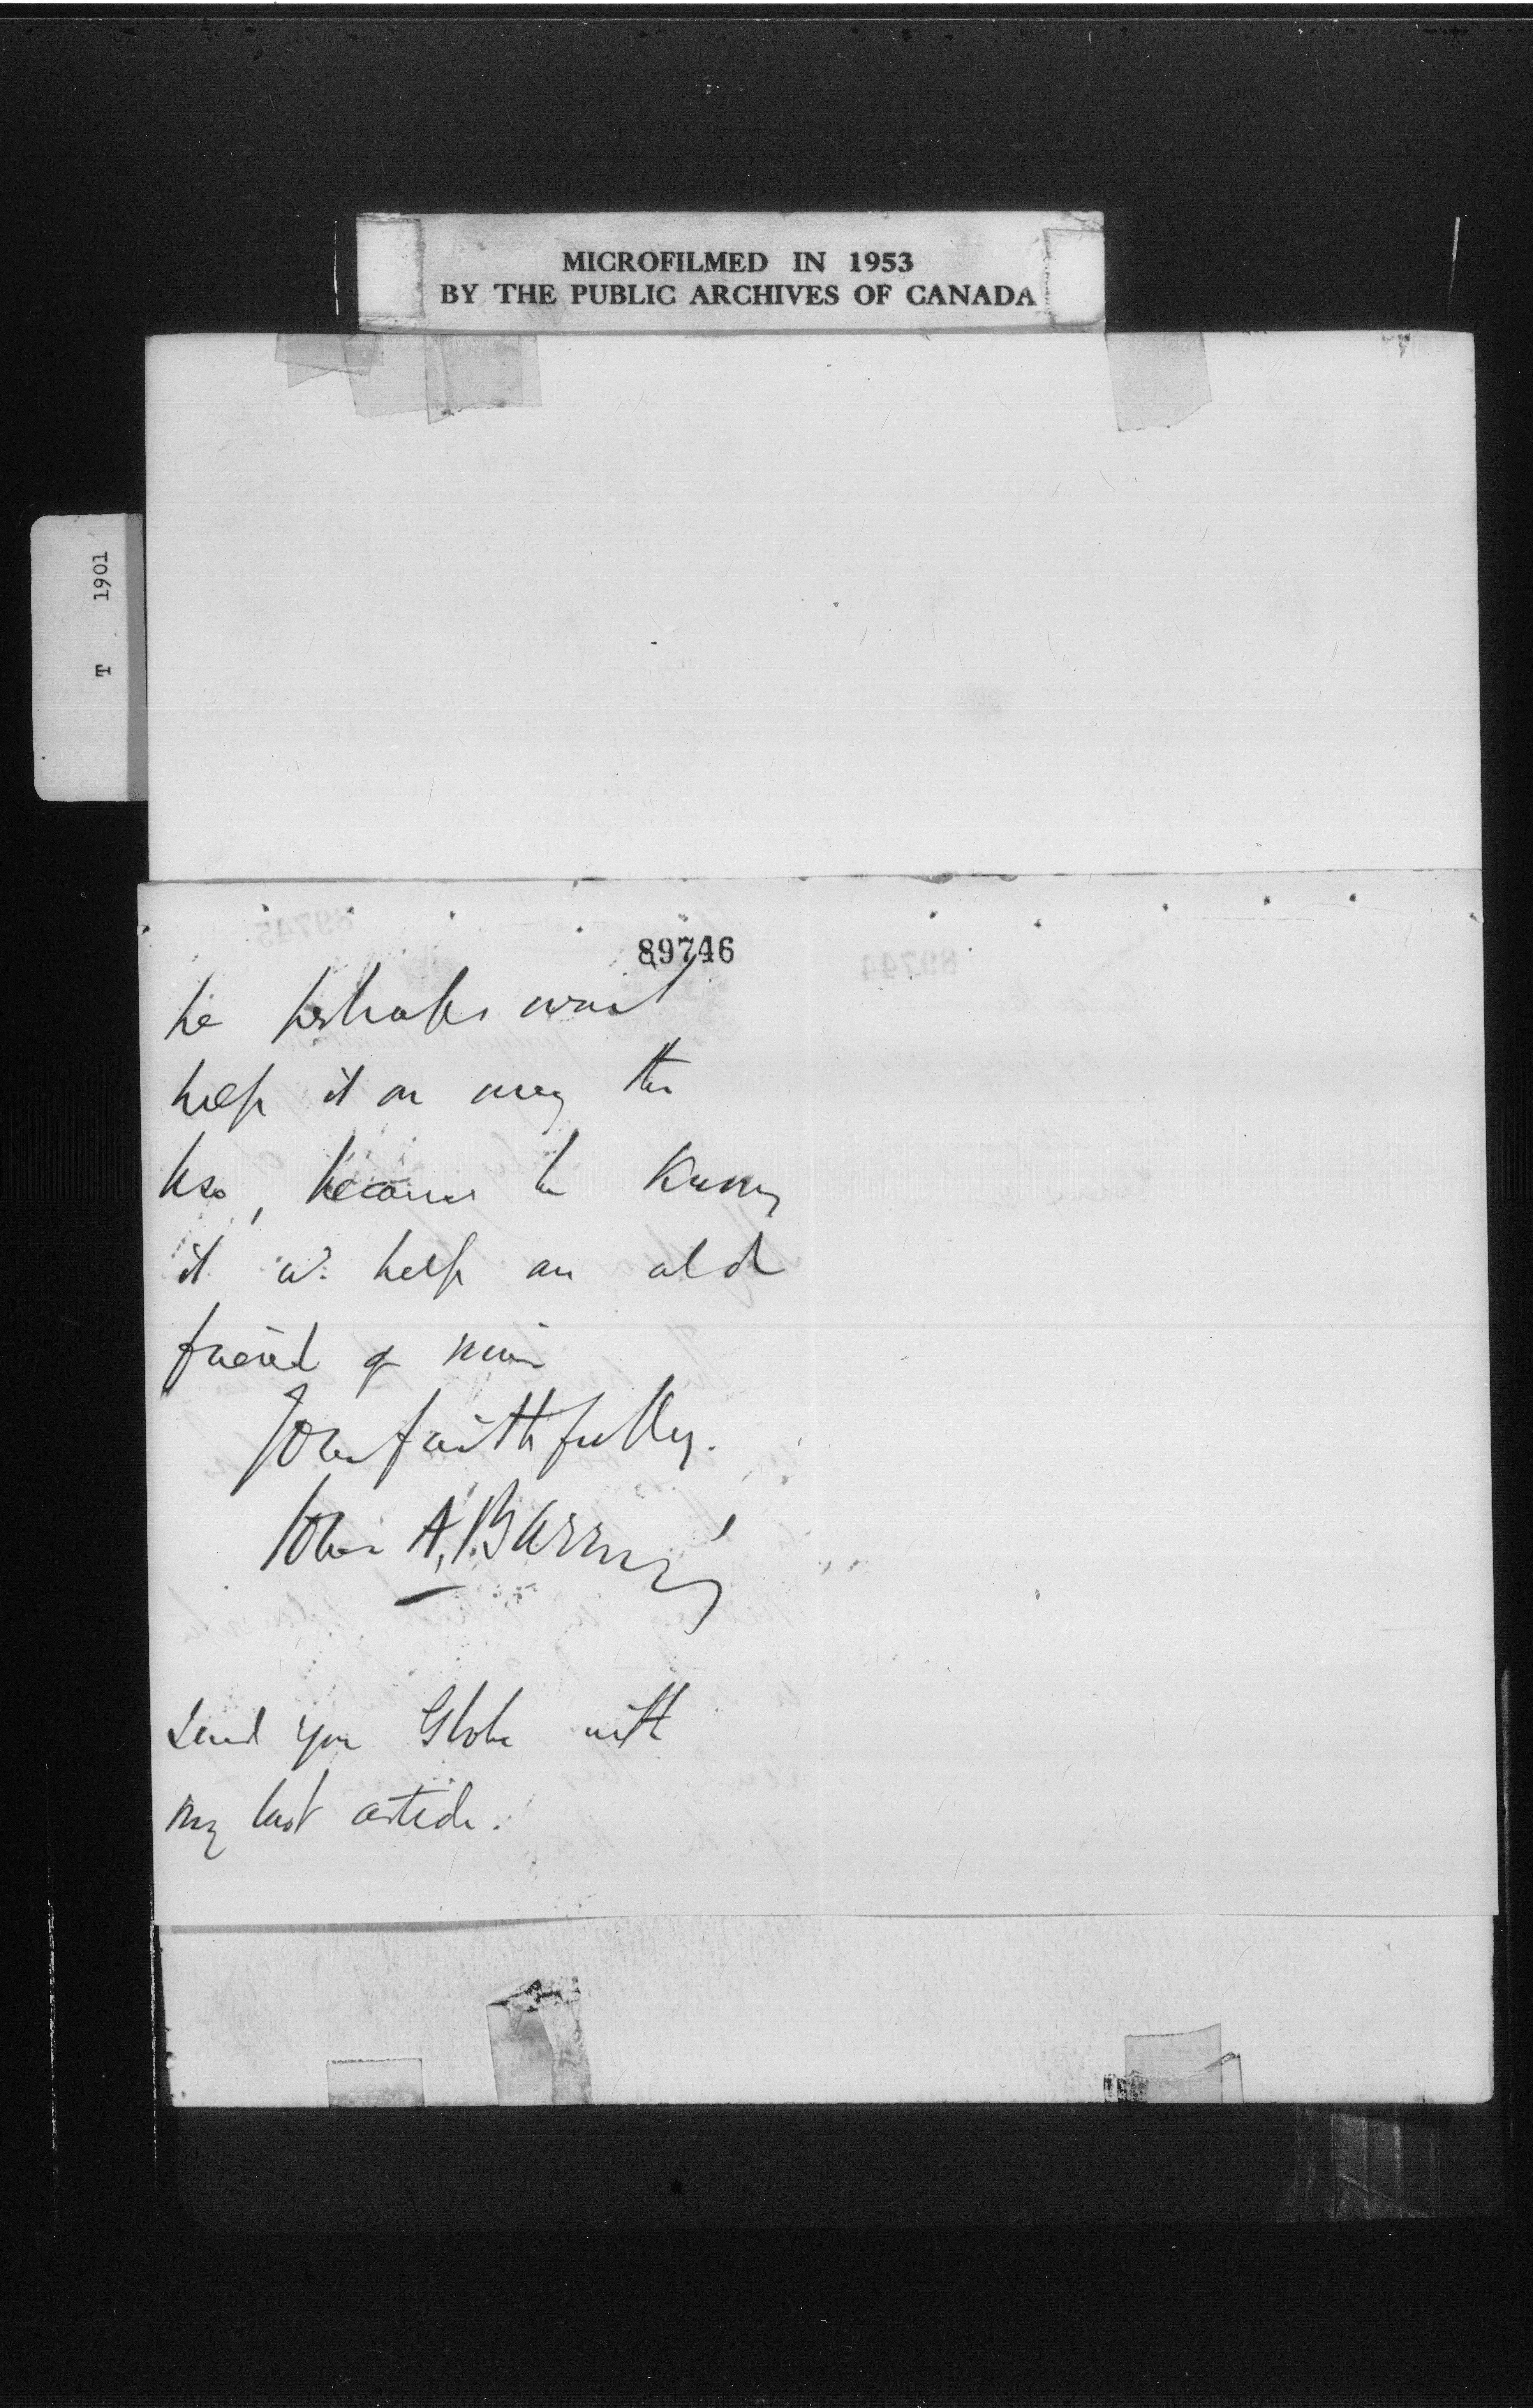 MICROFILMED IN 1953
BY THE PUBLIC ARCHIVES OF CANADA
T 1901
89746
he perhaps won't
help it on any the
less, because he knows
it wd. help an old
friend of mine
Yours faithfully.
John A. Barron
Send you Globe with
my last article.